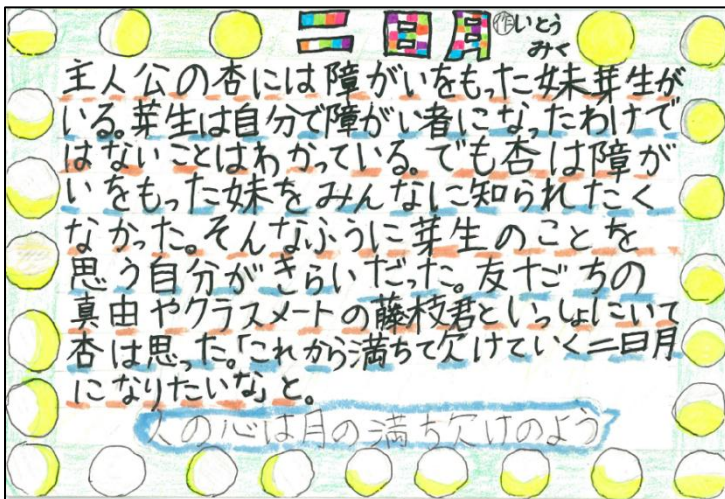 二日月 作いとう
みく
主人公の杏には障がいをもった妹芽生が
いる。芽生は自分で障がい者になったわけで
はないことはわかっている。でも杏は障が
いをもった妹をみんなに知られたく
なかった。そんなふうに芽生のことを
思う自分がきらいだった。友だちの
真由やクラスメートの藤枝君といっしょにいて
杏は思った。「これから満ちて欠けていく二日月
になりたいな」と。
人の心は月の満ち欠けのよう